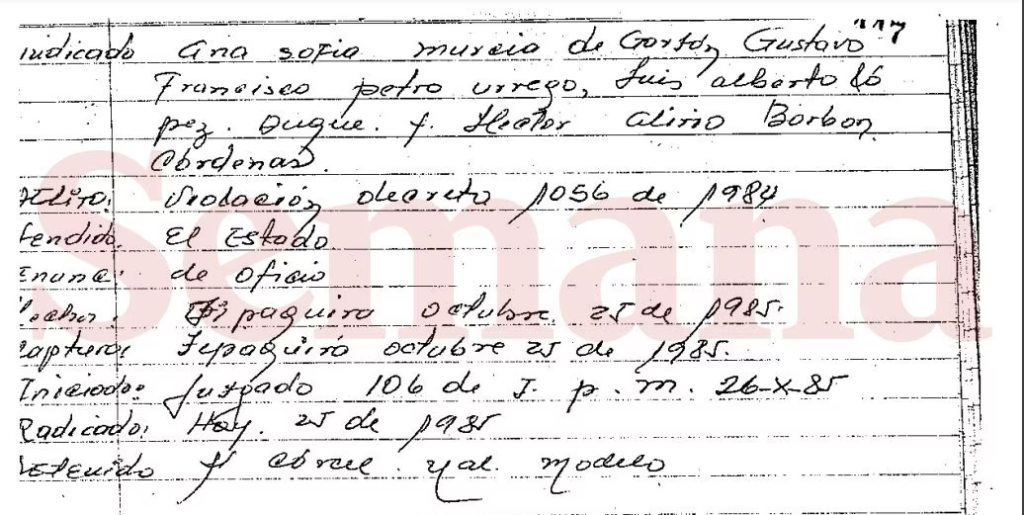 117
indicado Ana sofia murcia de Garzón Gustavo
Francisco petro urrego, Luis alberto ló
pez. Duque. y. Hector alirio Borbon
Cárdenas.
elito. Violación decreto 1056 de 1984
fendido. El Estado
enunc. de oficio
echos. Zipaquira octubre 25 de 1985.
captura, Zipaquirá octubre 25 de 1985.
Iniciado: Juzgado 106 de I. p. m. 26-X-85
Radicado: Hoy. 25 de 1985
etenido modelo
Semana